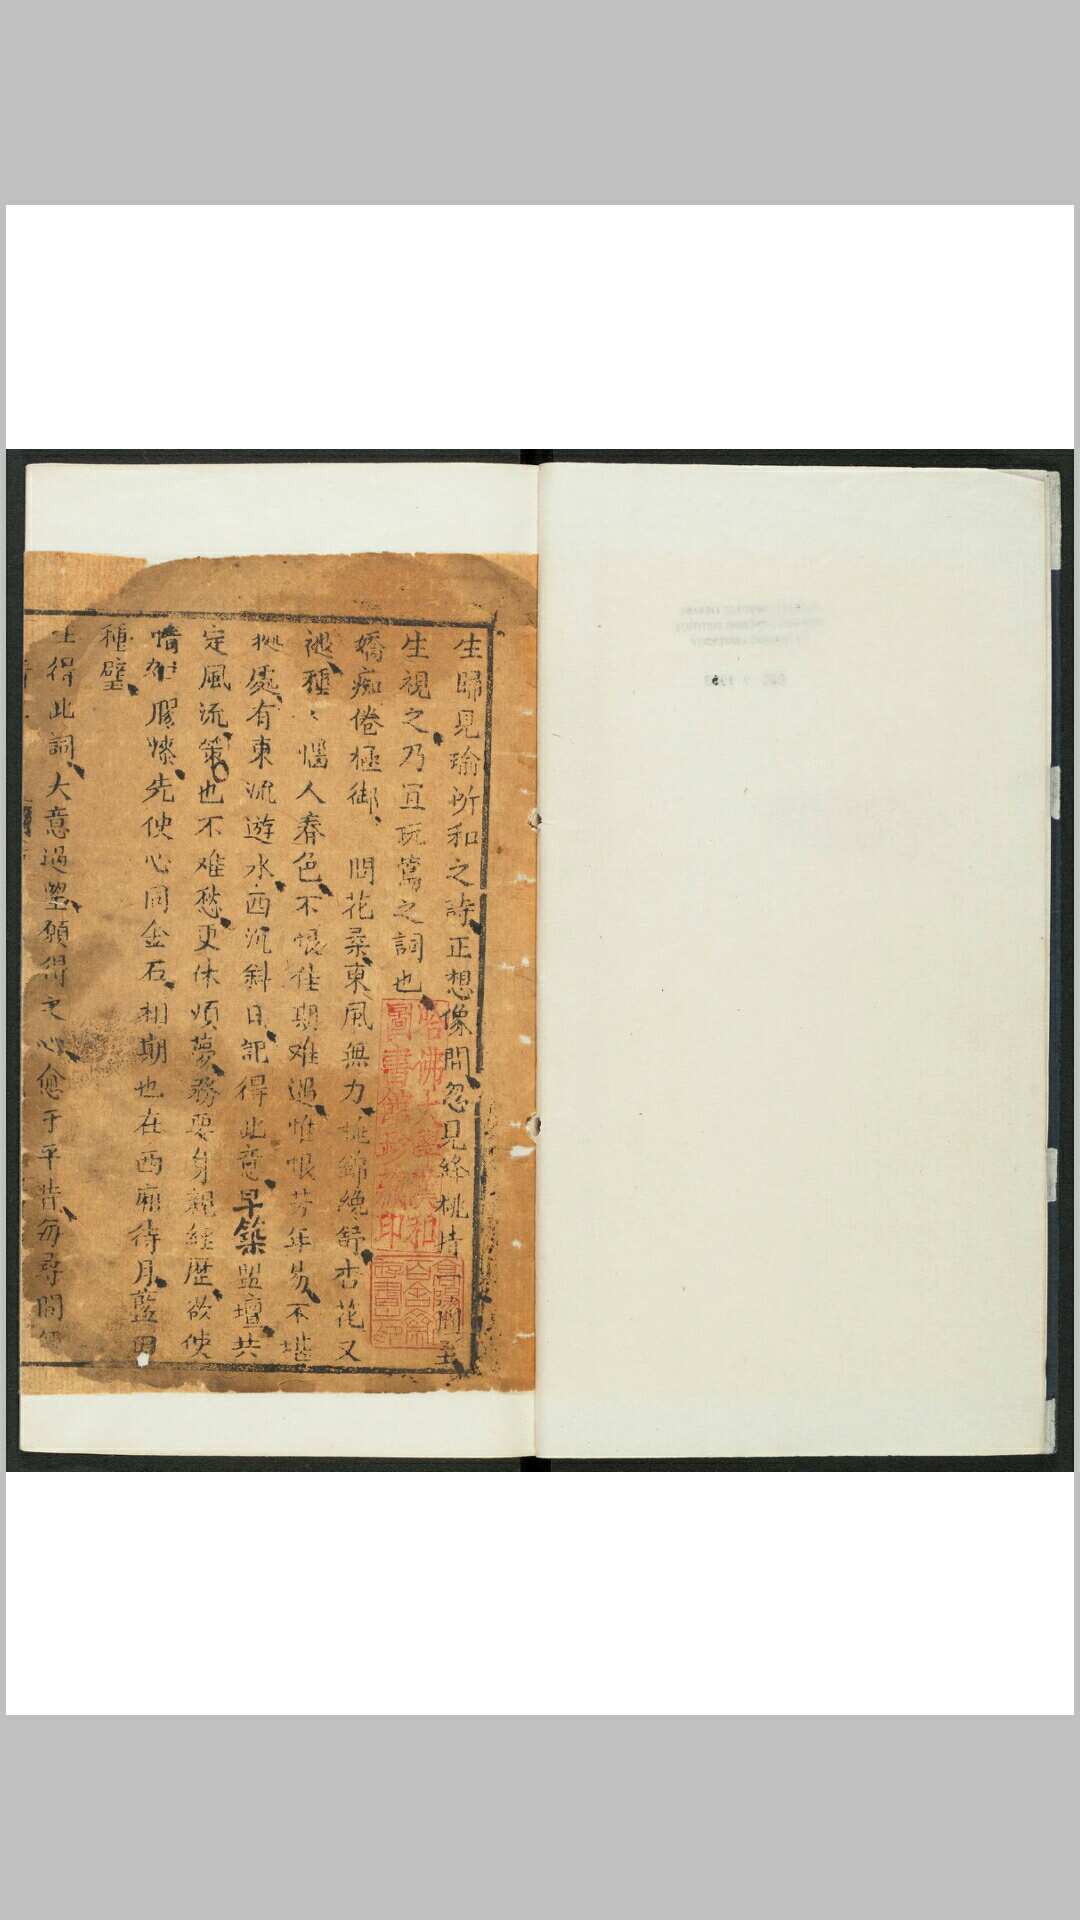 生歸見瑜所和之詩正想像間忽見絳桃持
生視之乃
玩鶯之詞也
嬌痴倦極御、問花柔東風無力桃錦纔舒杏花又
褪種〻惱人春色不恨佳期难遇惟恨芳年易
不堪
處有東流遊水西沉斜日記得此意早築盟壇共
定風流策也不难愁更休煩夢務要身親經歷欲使
情
膠漆先使心同金石相期也在西廂待月藍田
種璧
生得此詞大意過望願得之心愈于平昔每尋間
哈佛大學漢和
圖書館珍藏印